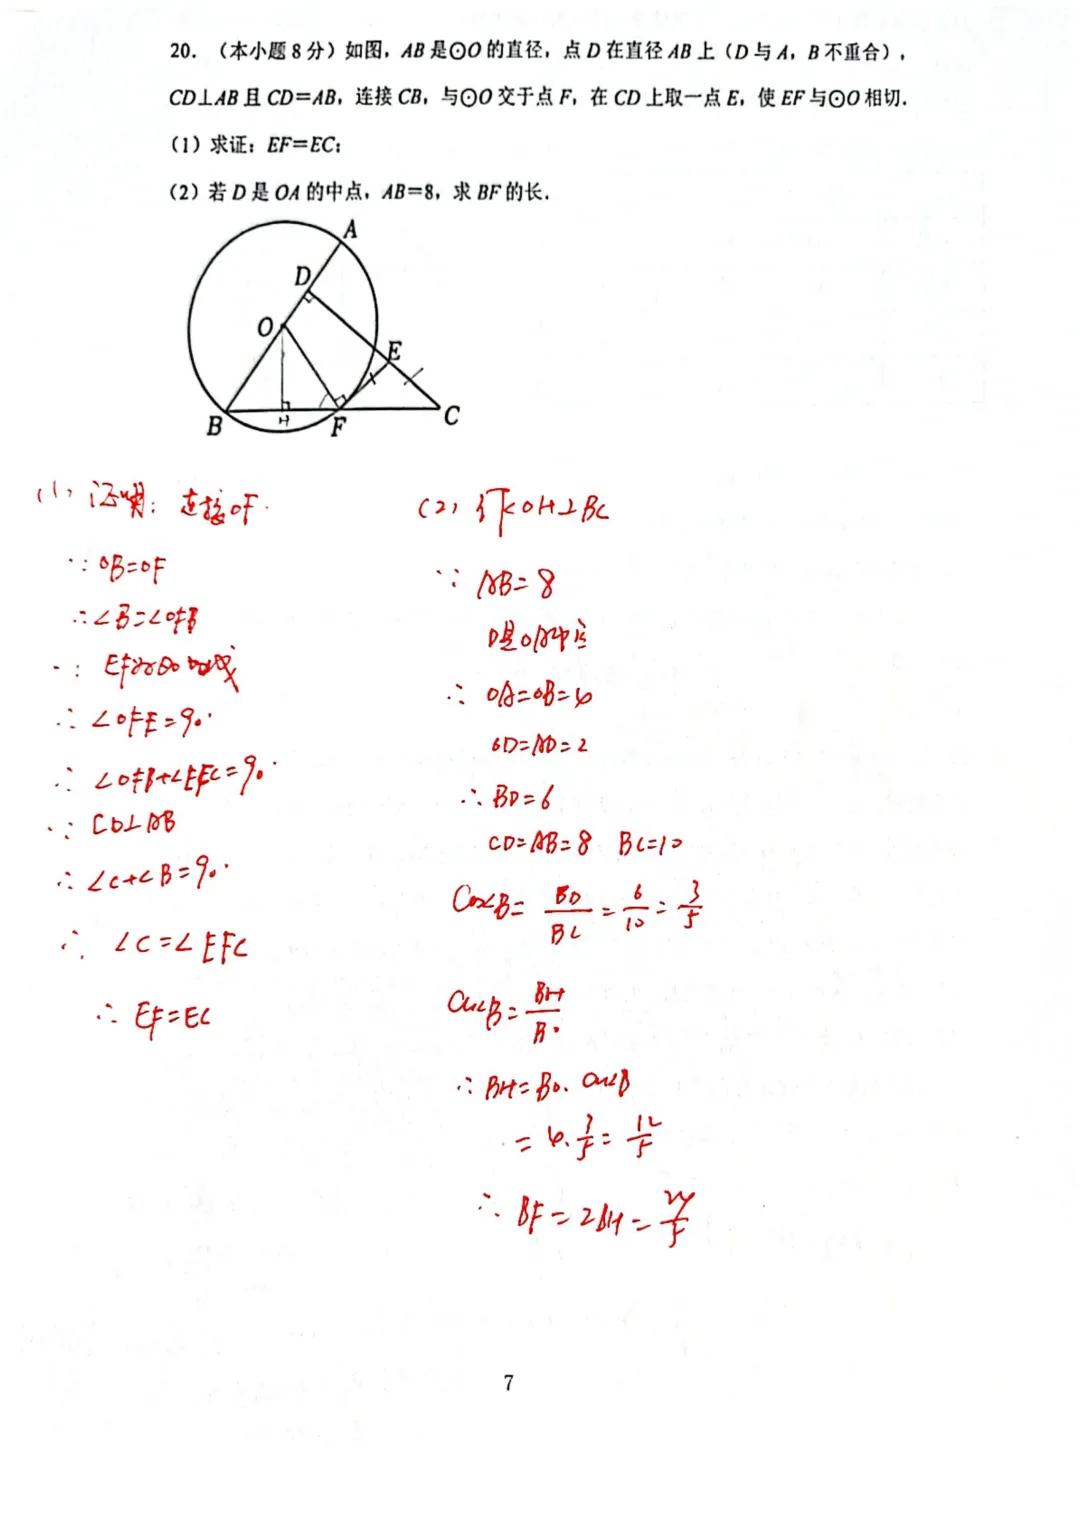 20. (本小题 8 分) 如图, AB 是⊙O 的直径, 点 D 在直径 AB 上 (D 与 A, B 不重合),
CD⊥AB 且 CD=AB, 连接 CB, 与⊙O 交于点 F, 在 CD 上取一点 E, 使 EF 与⊙O 相切.
(1) 求证: EF=EC;
(2) 若 D 是 OA 的中点, AB=8, 求 BF 的长.
A
D
O
E
B
H
F
C
(1) 证明: 连接OF.
∵ OB=OF
∴ ∠B=∠OFB
∵ EF为⊙O切线
∴ ∠OFE=90°
∴ ∠OFB+∠EFC=90°
∵ CD⊥AB
∴ ∠C+∠B=90°
∴ ∠C=∠EFC
∴ EF=EC
(2) 作OH⊥BC
∵ AB=8
D是OA中点
∴ OA=OB=4
OD=AD=2
∴ BD=6
CD=AB=8 BC=10
Cos∠B=BD/BC=6/10=3/5
Cos∠B=BH/BO
∴ BH=BO·Cos∠B
=4·3/5=12/5
∴ BF=2BH=24/5
7